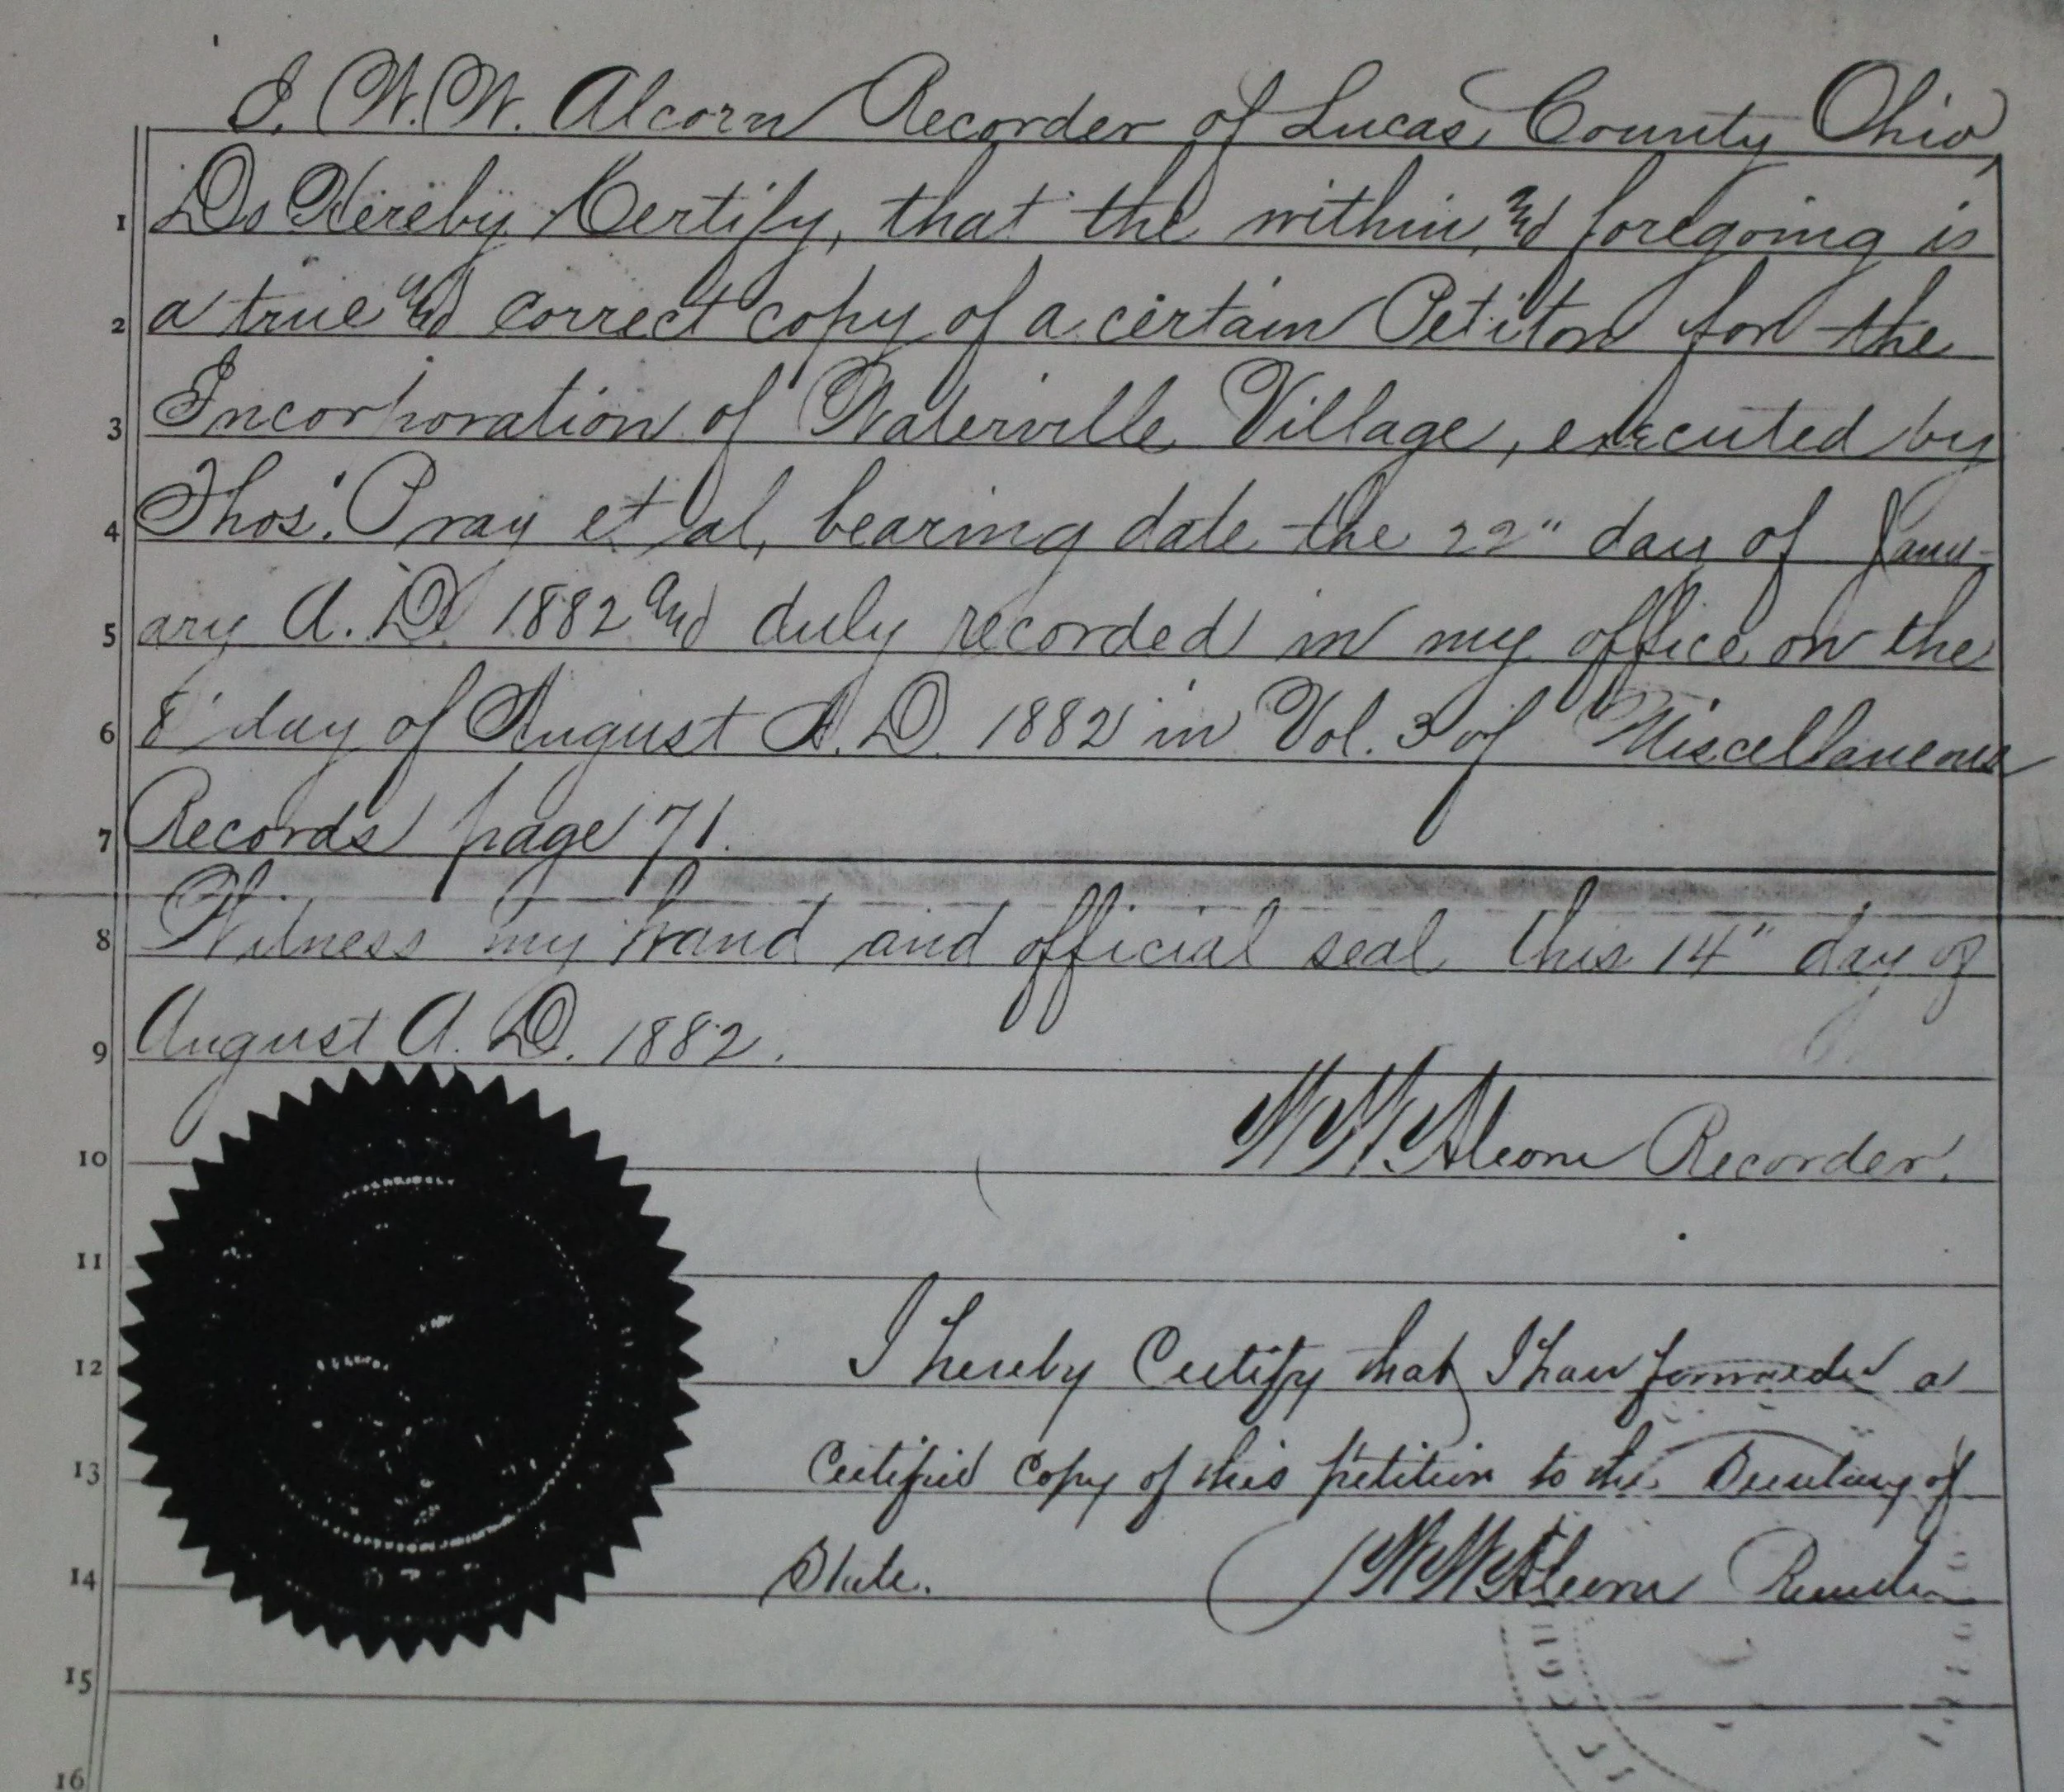 I. W. W. Alcorn Recorder of Lucas County Ohio
1 Do Hereby Certify, that the within and foregoing is
2 a true and correct copy of a certain Petiton for the
3 Incorporation of Waterville Village, executed by
4 Thos. Pray et al, bearing date the 22" day of Janu-
5 ary A. D. 1882 and duly recorded in my office on the
6 8" day of August A. D. 1882 in Vol. 3 of Miscellaneous
7 Records page 71.
8 Witness my hand and official seal this 14" day of
9 August A. D. 1882.
10 W W Alcorn Recorder.
11
12 I hereby Certify that I have forwarded a
13 Certified Copy of this petition to the Secretary of
14 State. W W Alcorn Recorder
15
16